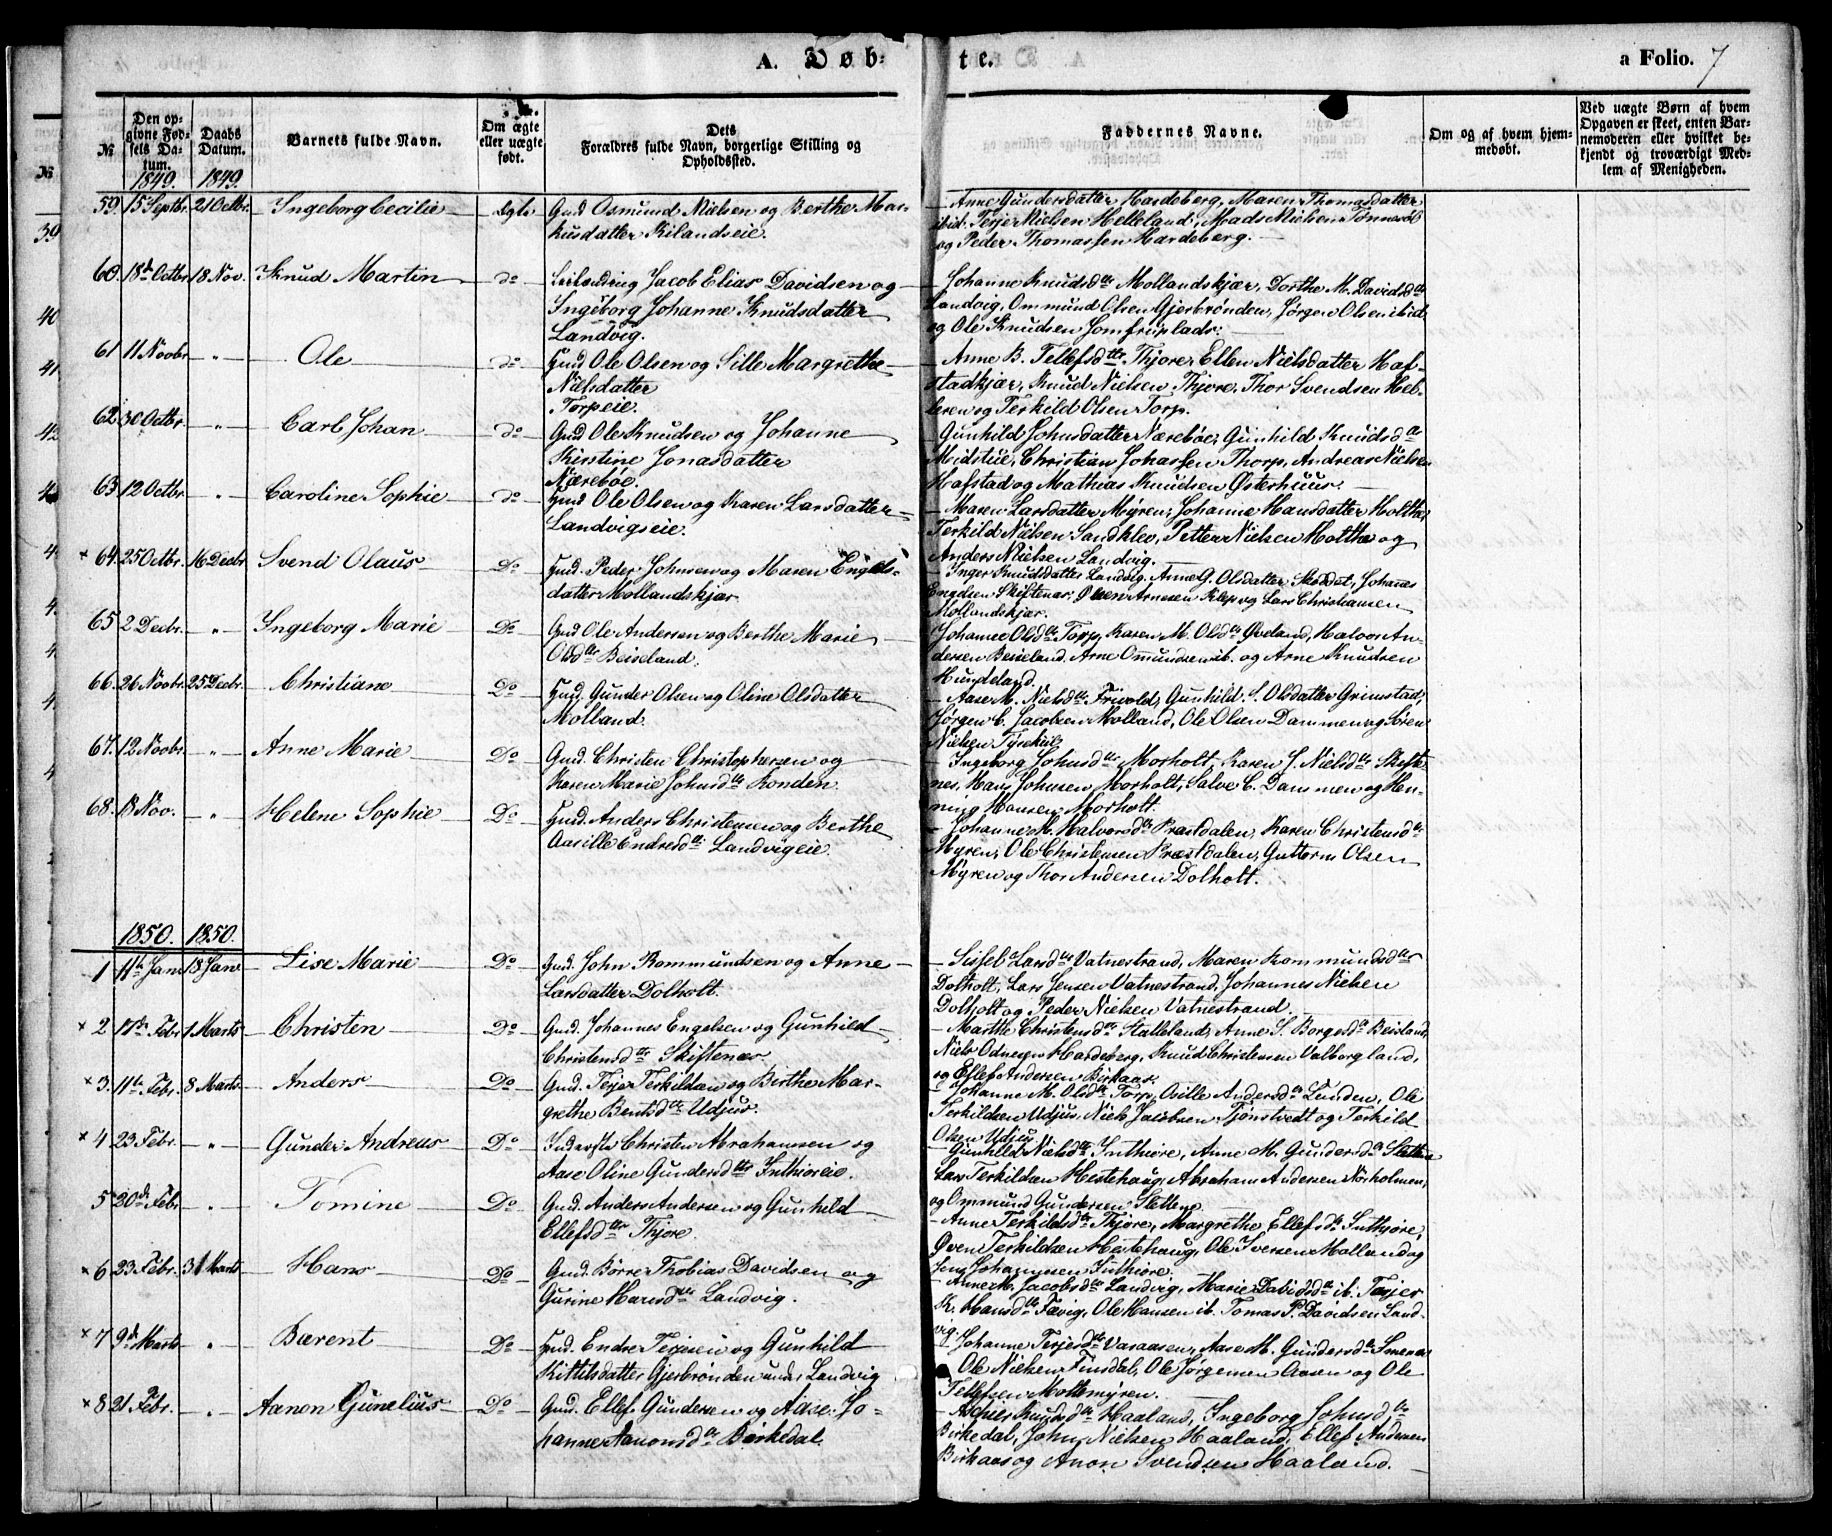 A. Døb-
te.
a Folio. 7
№
Den op-
givne Fød-
sels Da-
tum.
1849.
Daabs
Datum.
1849.
Barnets fulde Navn.
Om ægte
eller uægte
født.
Dets
Forældres fulde Navn, borgerlige Stilling og
Opholdssted.
Faddernes Navne.
Om og af hvem hjem-
medøbt.
Ved uægte Børn af hvem
Opgaven er skeet, enten Bar-
nemoderen eller hvilket be-
kjendt og troværdigt Med-
lem af Menigheden.
59. 15 Septbr. 21 Octbr. Ingeborg Cecilie Ægte Gmd Osmund Nielsen og Berthe Mar-
kusdatter Kilandseie.
Anne Gundersdatter Hardeberg, Maren Thomasdatter
ibid. Terje Nielsen Helleland, Mads Nielsen Tønnesøl
og Peder Thomassen Hardeberg.
60. 18de Octbr. 18 Nov. Knud Martin do Jacob Elias Davidsen og
Ingeborg Johanne Knudsdatter
Landvig.
Johanne Knudsdtr Mollandskjær, Dorthe M. Davidsdtr
Landvig, Ommund Olsen Gjerbrønden, Jørgen Olsen ibid
og Ole Knudsen Jomfruplads.
61 11 Novbr. - " - Ole do Gmd Ole Olsen og Sille Margrethe
Nielsdatter
Torpeie.
Anne B. Tellefsdtr Thjore, Ellen Nielsdatter Haf-
stadkjær, Knud Nielsen Thjore, Thor Svendsen
og Terkild Olsen Torp.
62 30 Octbr. - " - Carl Johan do Gmd Ole Knudsen og Johanne
Kirstine Jonasdatter
Nærebøe.
Gunhild Johnsdatter Nærebøe, Gunhild Knudsdtr
Midstue, Christian Johassen Thorp, Andreas Nielsen
Hafstad og Mathias Knudsen Østerhuus.
63 12 Octbr - " - Caroline Sophie do Gmd Ole Olsen og Karen Larsdatter
Landvigseie.
Maren Larsdatter Myren, Johanne Hansdatter Molthe,
Terkild Nielsen Sandklev, Petter Nielsen Molthe og
Anders Nielsen Landvig.
× 64. 25 Octbr. 16 Decbr Svend Olaus Do Gmd. Peder Johnsen og Maren Engels-
datter Mollandskjær.
Inger Knudsdatter Landvig, Anne G. Olsdatter Skoddal, Johannes
Engelsen Skiftenæs, Øven Arnesen Klep og Lars Christiansen
Mollandskjær.
65 2 Decbr. - " - Ingeborg Marie Do Gmd Ole Andersen og Berthe Marie
Olsdtr Beiseland.
Johanne Olsdtr Torp, Karen M. Olsdtr Øveland, Halvor An-
dersen Beiseland, Arne Omundsen ib. og Arne Knudsen
Hundeland.
66. 26 Novbr. 25 Decbr. Christiane Do Gmd. Gunder Olsen og Oline Olsdatter
Molland.
Aase M. Nielsdtr Frivold, Gunhild S. Olsdatter Grimstad,
Jørgen C. Jacobsen Molland, Ole Olsen Dammen og Søren
Nielsen
67. 12 Novbr. - " - Anne Marie Do Gmd. Christen Christophersen og
Karen Marie Johnsdtr Konden.
Ingeborg Johnsdtr Morholt, Karen S. Nielsdtr Skifte-
nes, Hans Johnsen Morholt, Salve C. Dammen og Hen-
ning Hansen Morholt.
68. 13 Nov. - " - Helene Sophie Do Gmd. Anders Christensen og Berthe
Aasille Endresdtr Landvigeie.
Johanne M. Halvorsdtr Præstdalen, Karen Christensdtr
Myren, Ole Christensen Præstdalen, Guttorm Olsen
Myren og Thor Andersen Dolholt.
1850. 1850.
1 11te Jan 13 Janr Lise Marie Do Gmd. John Rommundsen og Anne
Larsdatter Dolholt.
Sissel Larsdtr Vatnestrand, Maren Rommundsdtr
Dolholt, Lars Jensen Vatnestrand, Johannes Nielsen
Dolholt og Peder Nielsen Vatnestrand.
× 2 17de Febr 1 Marts Christen Do Gmd. Johannes Engelsen og Gunhild
Christensdtr Skiftenæs.
Marthe Christensdtr Stalleland, Anne S. Børgesdtr Beisland,
Niels Odnesen Hardeberg, Knud Christensen Valborgland,
og Ellef Andersen Birkaas.
× 3. 11te Febr. 8 Marts Anders Do Gmd. Terje Terkildsen og Berthe Mar-
grethe Bentsdtr Udjus.
Johanne M. Olsdtr Torp, Osille Andersdtr Lunden, Ole
Terkildsen Udjus, Niels Jacobsen Tjønstvedt og Terkild
Olsen Udjus
× 4 23 Febr. - " - Gunder Andreas Do Inderste Christen Abrahamsen og
Aase Oline Gundersdtr Inthioreie.
Gunhild Nielsdtr Inthiore, Anne M. Gundersdtr Sletten,
Lars Terkildsen Hestehaug, Abraham Andersen Norholmen,
og Ommund Gundersen Slettene
5 20de Febr - " - Tomine Do Gmd. Anders Andersen og Gunhild
Ellefsdtr Thjore.
Anne Terkildsdtr Thjore, Margrethe Ellefsdtr Inthjore,
Øven Terkildsen Hestehaug, Ole Iversen Molland og
Jens Johannesen Inthiore.
× 6 23 Febr. 31 Marts Hans Do Gmd. Børre Thobias Davidsen og
Gurine Hansdtr Landvig.
Anne M. Jacobsdtr Landvig, Marie Davidsdtr ib. Terjer
K. Hansdtr Fævig, Ole Hansen ib. Tomas P. Davidsen Land-
vig
× 7 9de Marts " Bærent Do Gmd. Endre Terjesen og Gunhild
Kittilsdatter Gjerbrønden under Landvig
Johanne Terjesdtr Varaasen, Aase M. Gundersdtr Smenes
Ole Nielsen Finsdal, Ole Jørgensen Aasen og Ole
Tellefsen Moltemyren.
× 8 21 Febr. - " - Aanon Gunelius Do Gmd. Ellef Gundersen og Aase Jo-
hanne Aanonsdtr Birkedal.
Knudsdtr Haaland, Ingeborg Johnsdtr
Birkedal, John Nielsen Haaland, Ellef Andersen
Birkaas og Anon Svendsen Haaland.